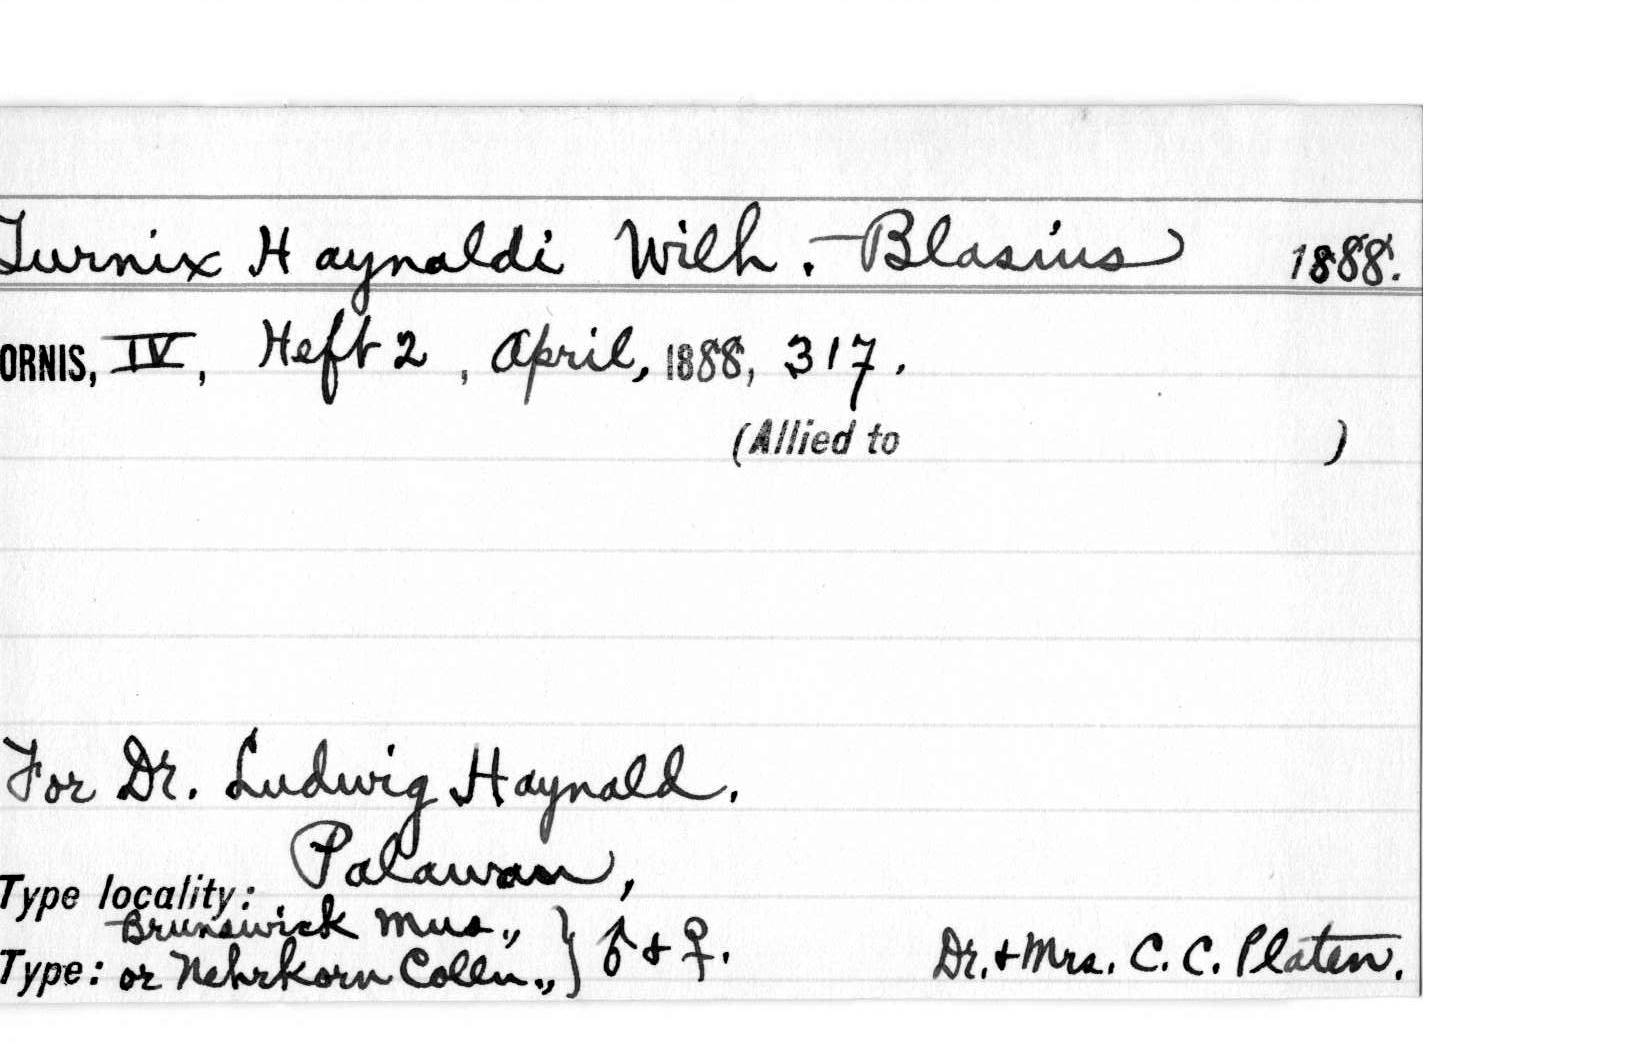 Turnix Haynaldi Wilh. Blasius 1888.
ORNIS, IV, Heft 2, April, 1888, 317.
(Allied to )
For Dr. Ludwig Haynald.
Type locality: Palawan,
Brunswick Mus.,
Type: or Nehrkorn Colln., } ♂ + ♀. Dr. + Mrs. C. C. Platen.